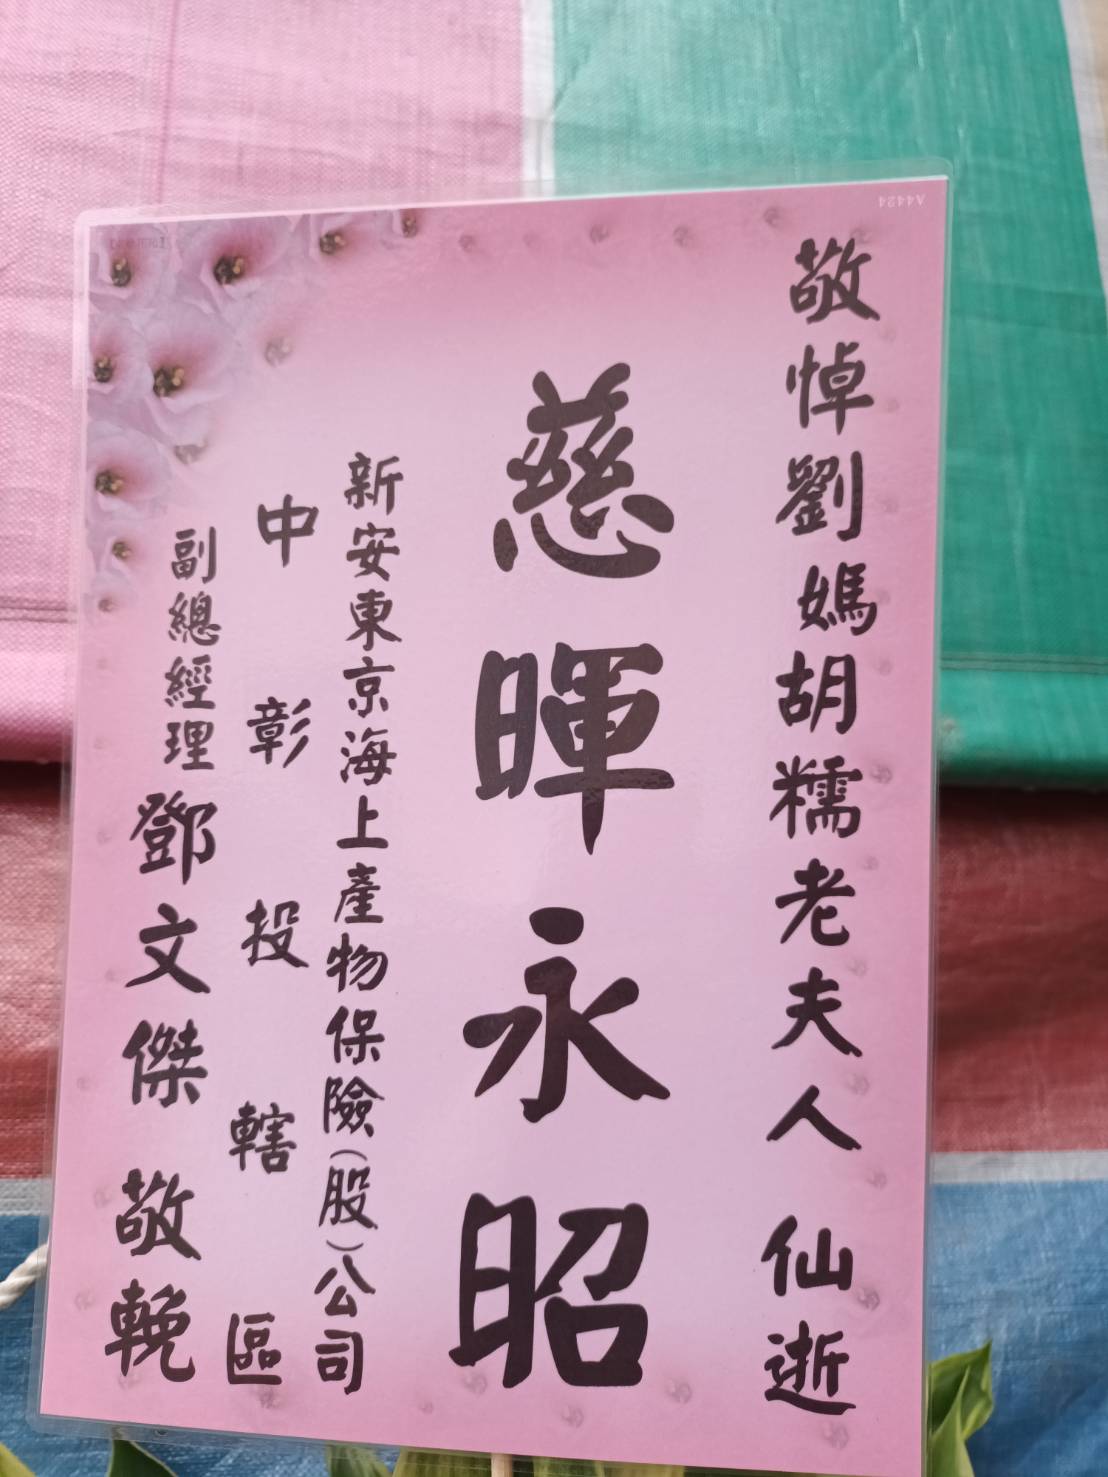 敬悼劉媽胡糯老夫人仙逝
慈暉永昭
新安東京海上產物保險(股)公司
中彰投轄區
副總經理鄧文傑敬輓
A4424